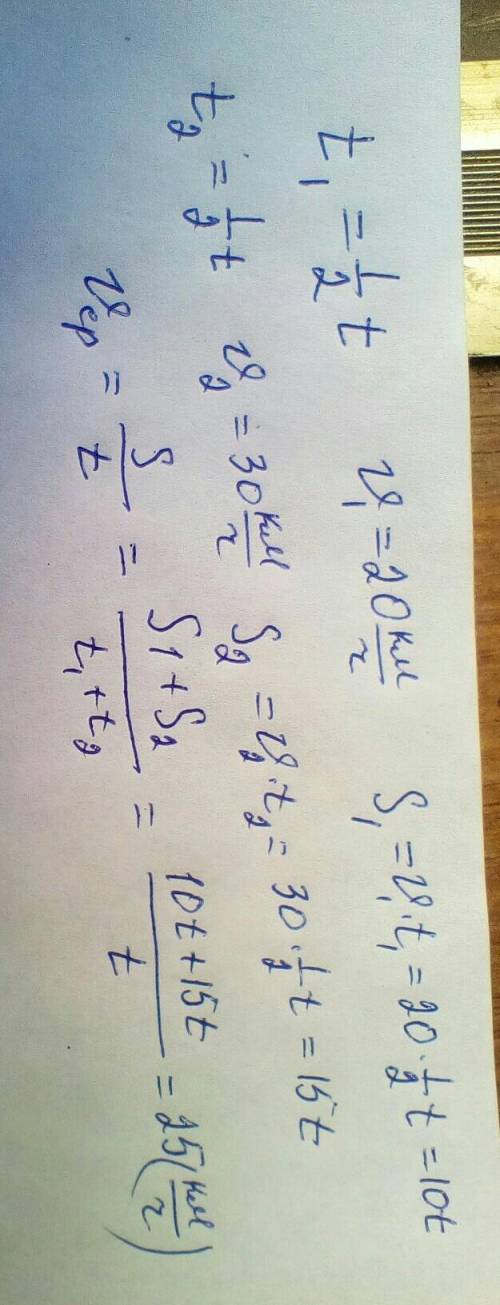 t₁ = 1/2 t   υ₁ = 20 км/ч   S₁ = υ₁·t₁ = 20·1/2 t = 10t
t₂ = 1/2 t   υ₂ = 30 км/ч   S₂ = υ₂·t₂ = 30·1/2 t = 15t
υср = S/t = (S1 + S₂)/(t₁ + t₂) = (10t + 15t)/t = 25 (км/ч)